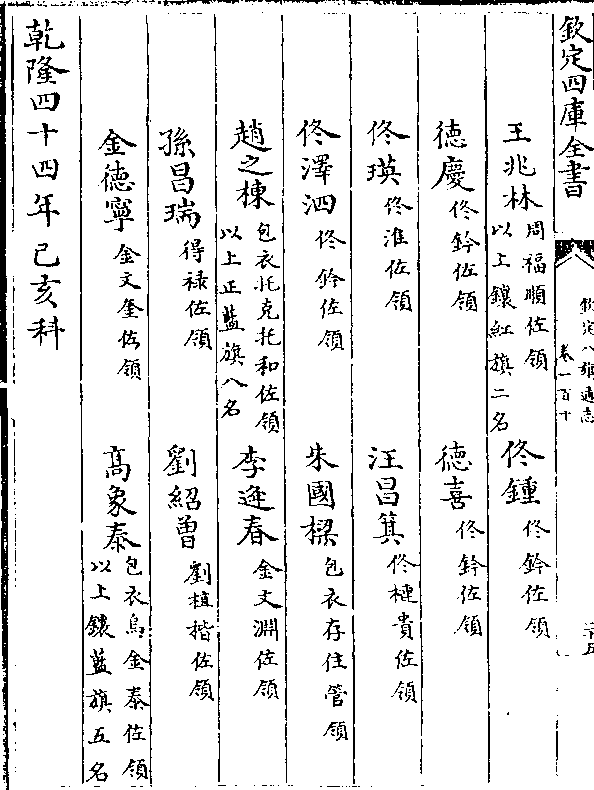 欽定四庫全書
欽定八旗通志
卷一百十
王兆林 周福順佐領 以上鑲紅旗二名
佟鍾 佟鈐佐領
德慶 佟鈐佐領
德喜 佟鈐佐領
佟瑛 佟淮佐領
汪昌箕 佟槤貴佐領
佟澤泗 佟鈐佐領
朱國樑 包衣存住管領
趙之棟 包衣托克托和佐領 以上正藍旗八名
李逢春 金文淵佐領
孫昌瑞 得祿佐領
劉紹曾 劉植楷佐領
金德寧 金文奎佐領
高象泰 包衣烏金泰佐領 以上鑲藍旗五名
乾隆四十四年己亥科